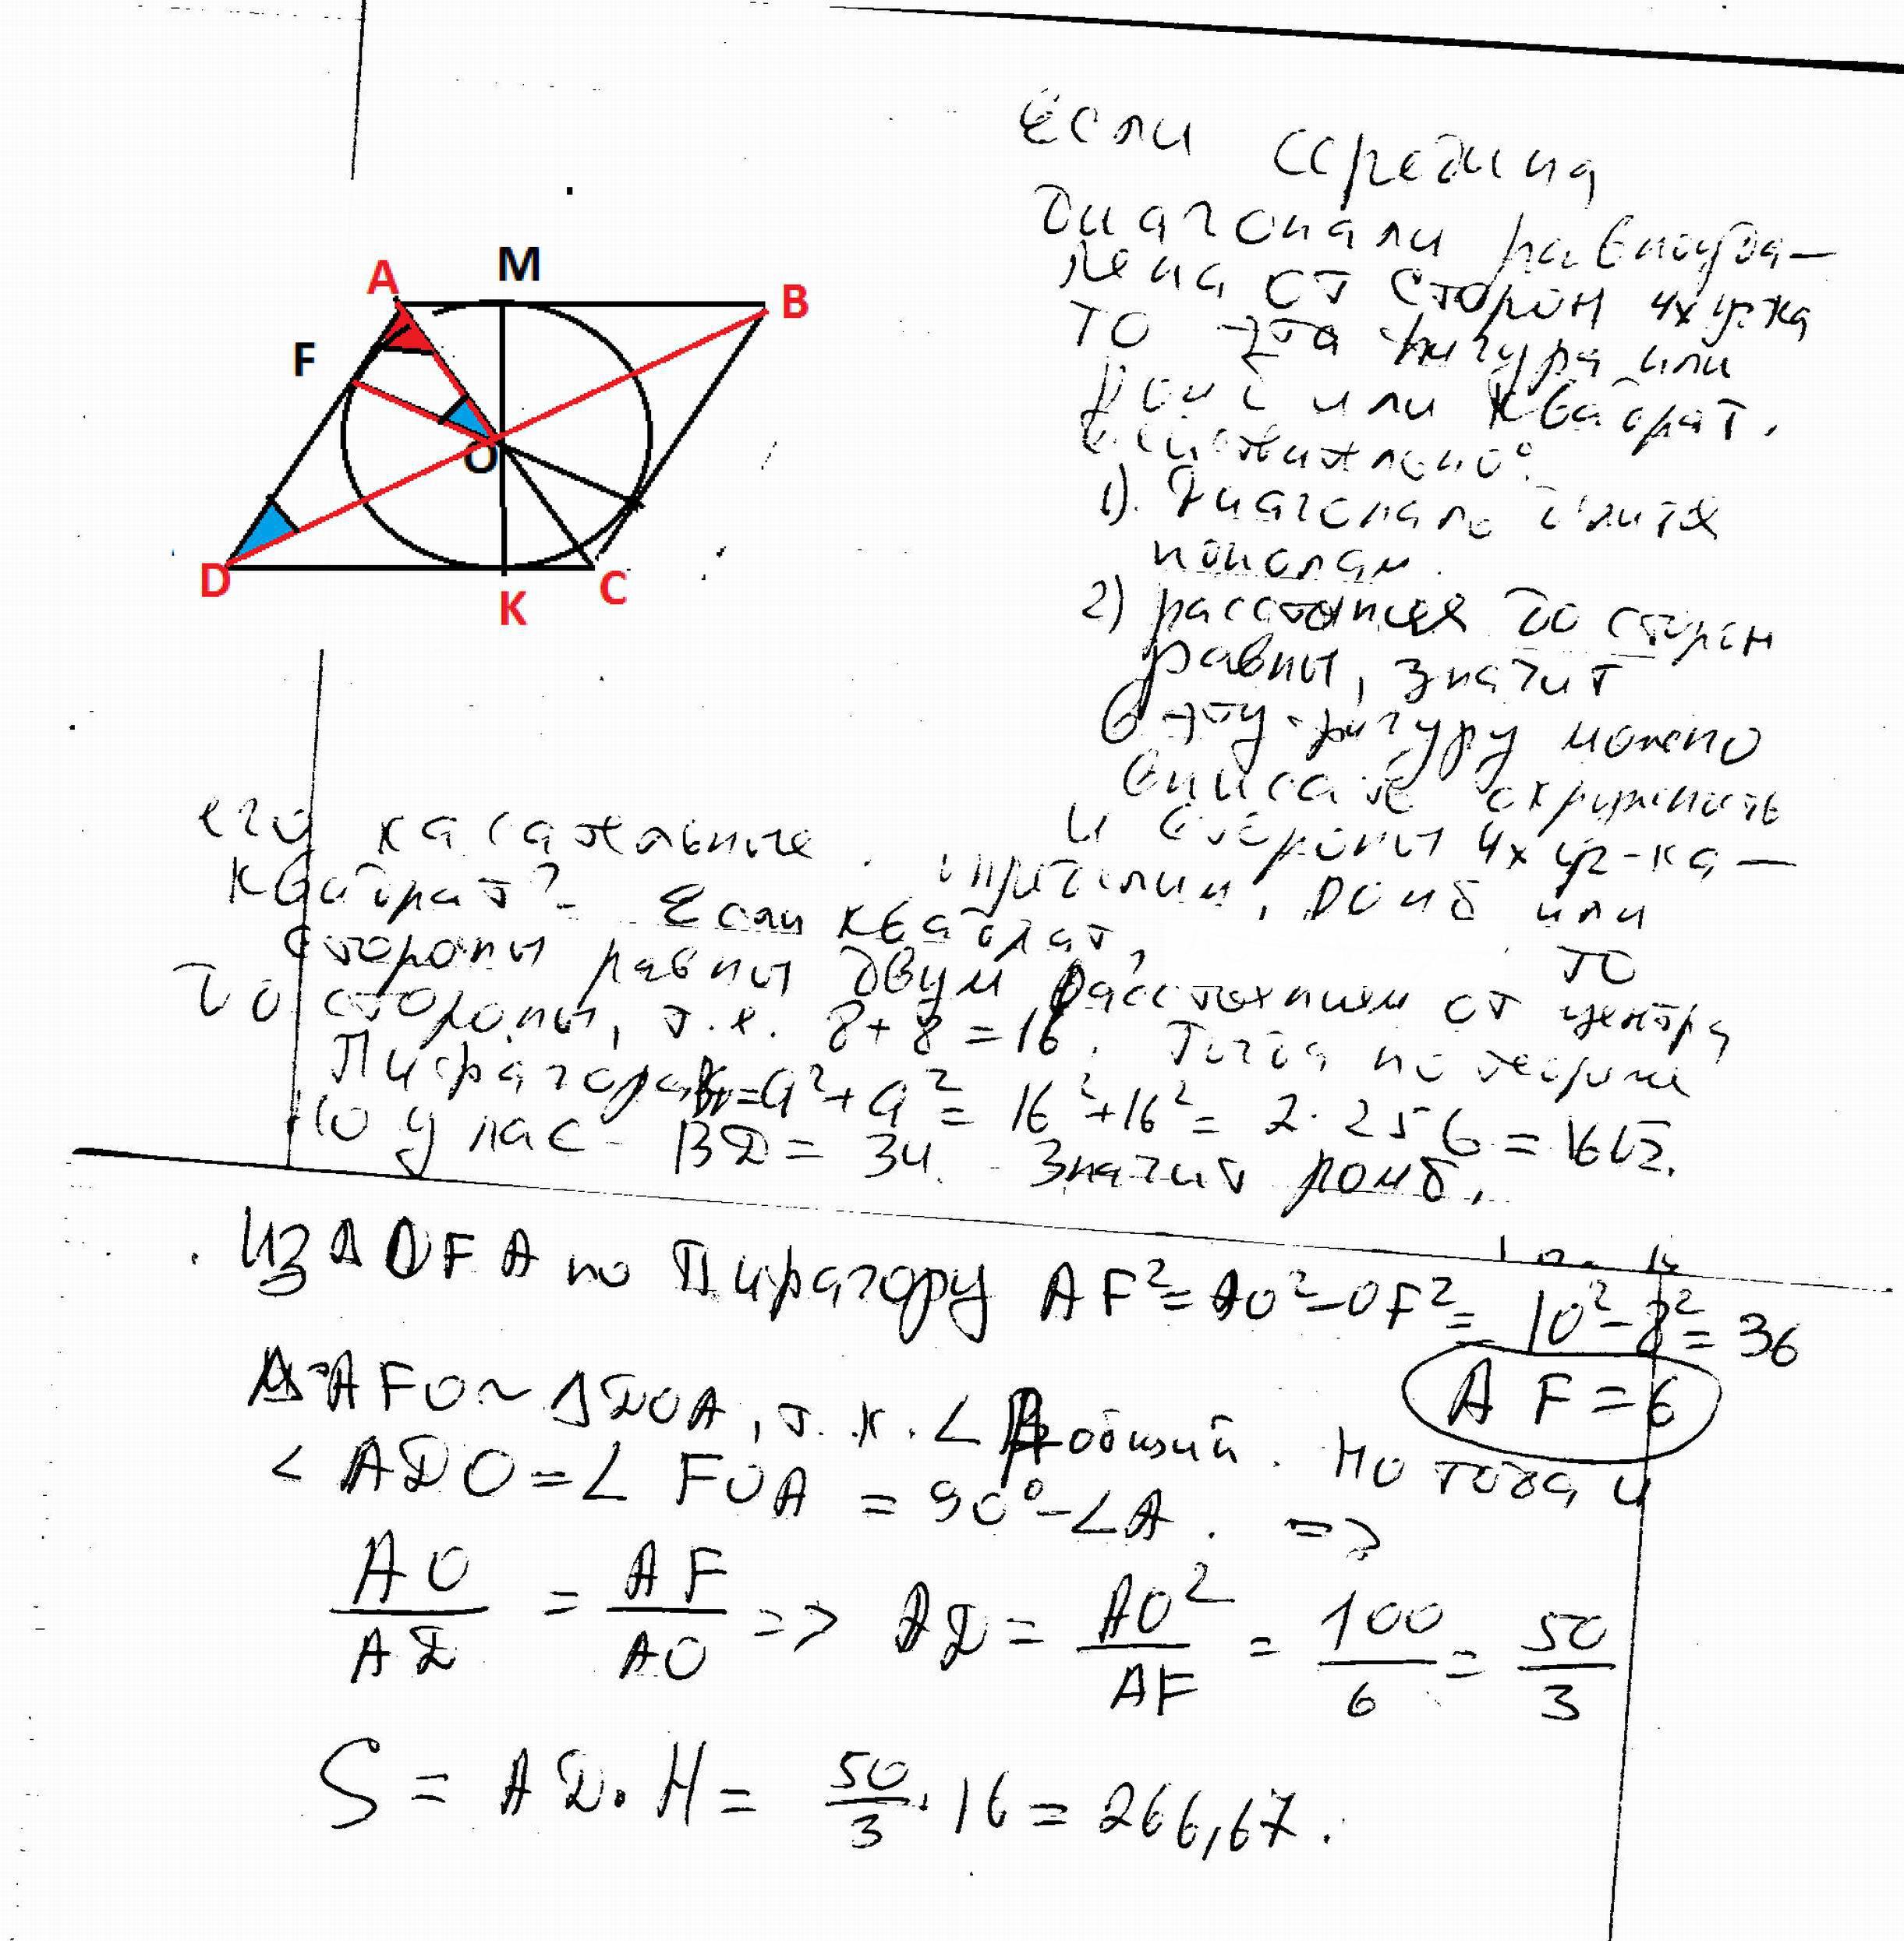 Если середина
диагонали равноуда-
лена от сторон 4х уг-ка
то эта фигура или
ромб или квадрат.
1). Диагональ делится
пополам.
2) расстояния до сторон
равны, значит
в эту фигуру можно
вписать окружность
и стороны 4х уг-ка -
его касательные.
ромб или
квадрат? Если квадрат, то
стороны равны двум расстояниям от центра
до стороны, т.е. 8+8=16. Тогда по теореме
Пифагора = a²+a² = 16²+16² = 2·256 = 16√2.
Но у нас - BD = 34. Значит ромб.
Из Δ OFA по Пифагору AF² = AO²-OF² = 10²-8² = 36
AF = 6
Δ AFO ~ ΔDOA, т.к. ∠A общий. Но тогда и
∠ ADO = ∠ FOA = 90°-∠A. =>
AO/AD = AF/AO => AD = AO²/AF = 100/6 = 50/3
S = AD·H = 50/3·16 = 266,67.
A
M
B
F
O
D
K
C